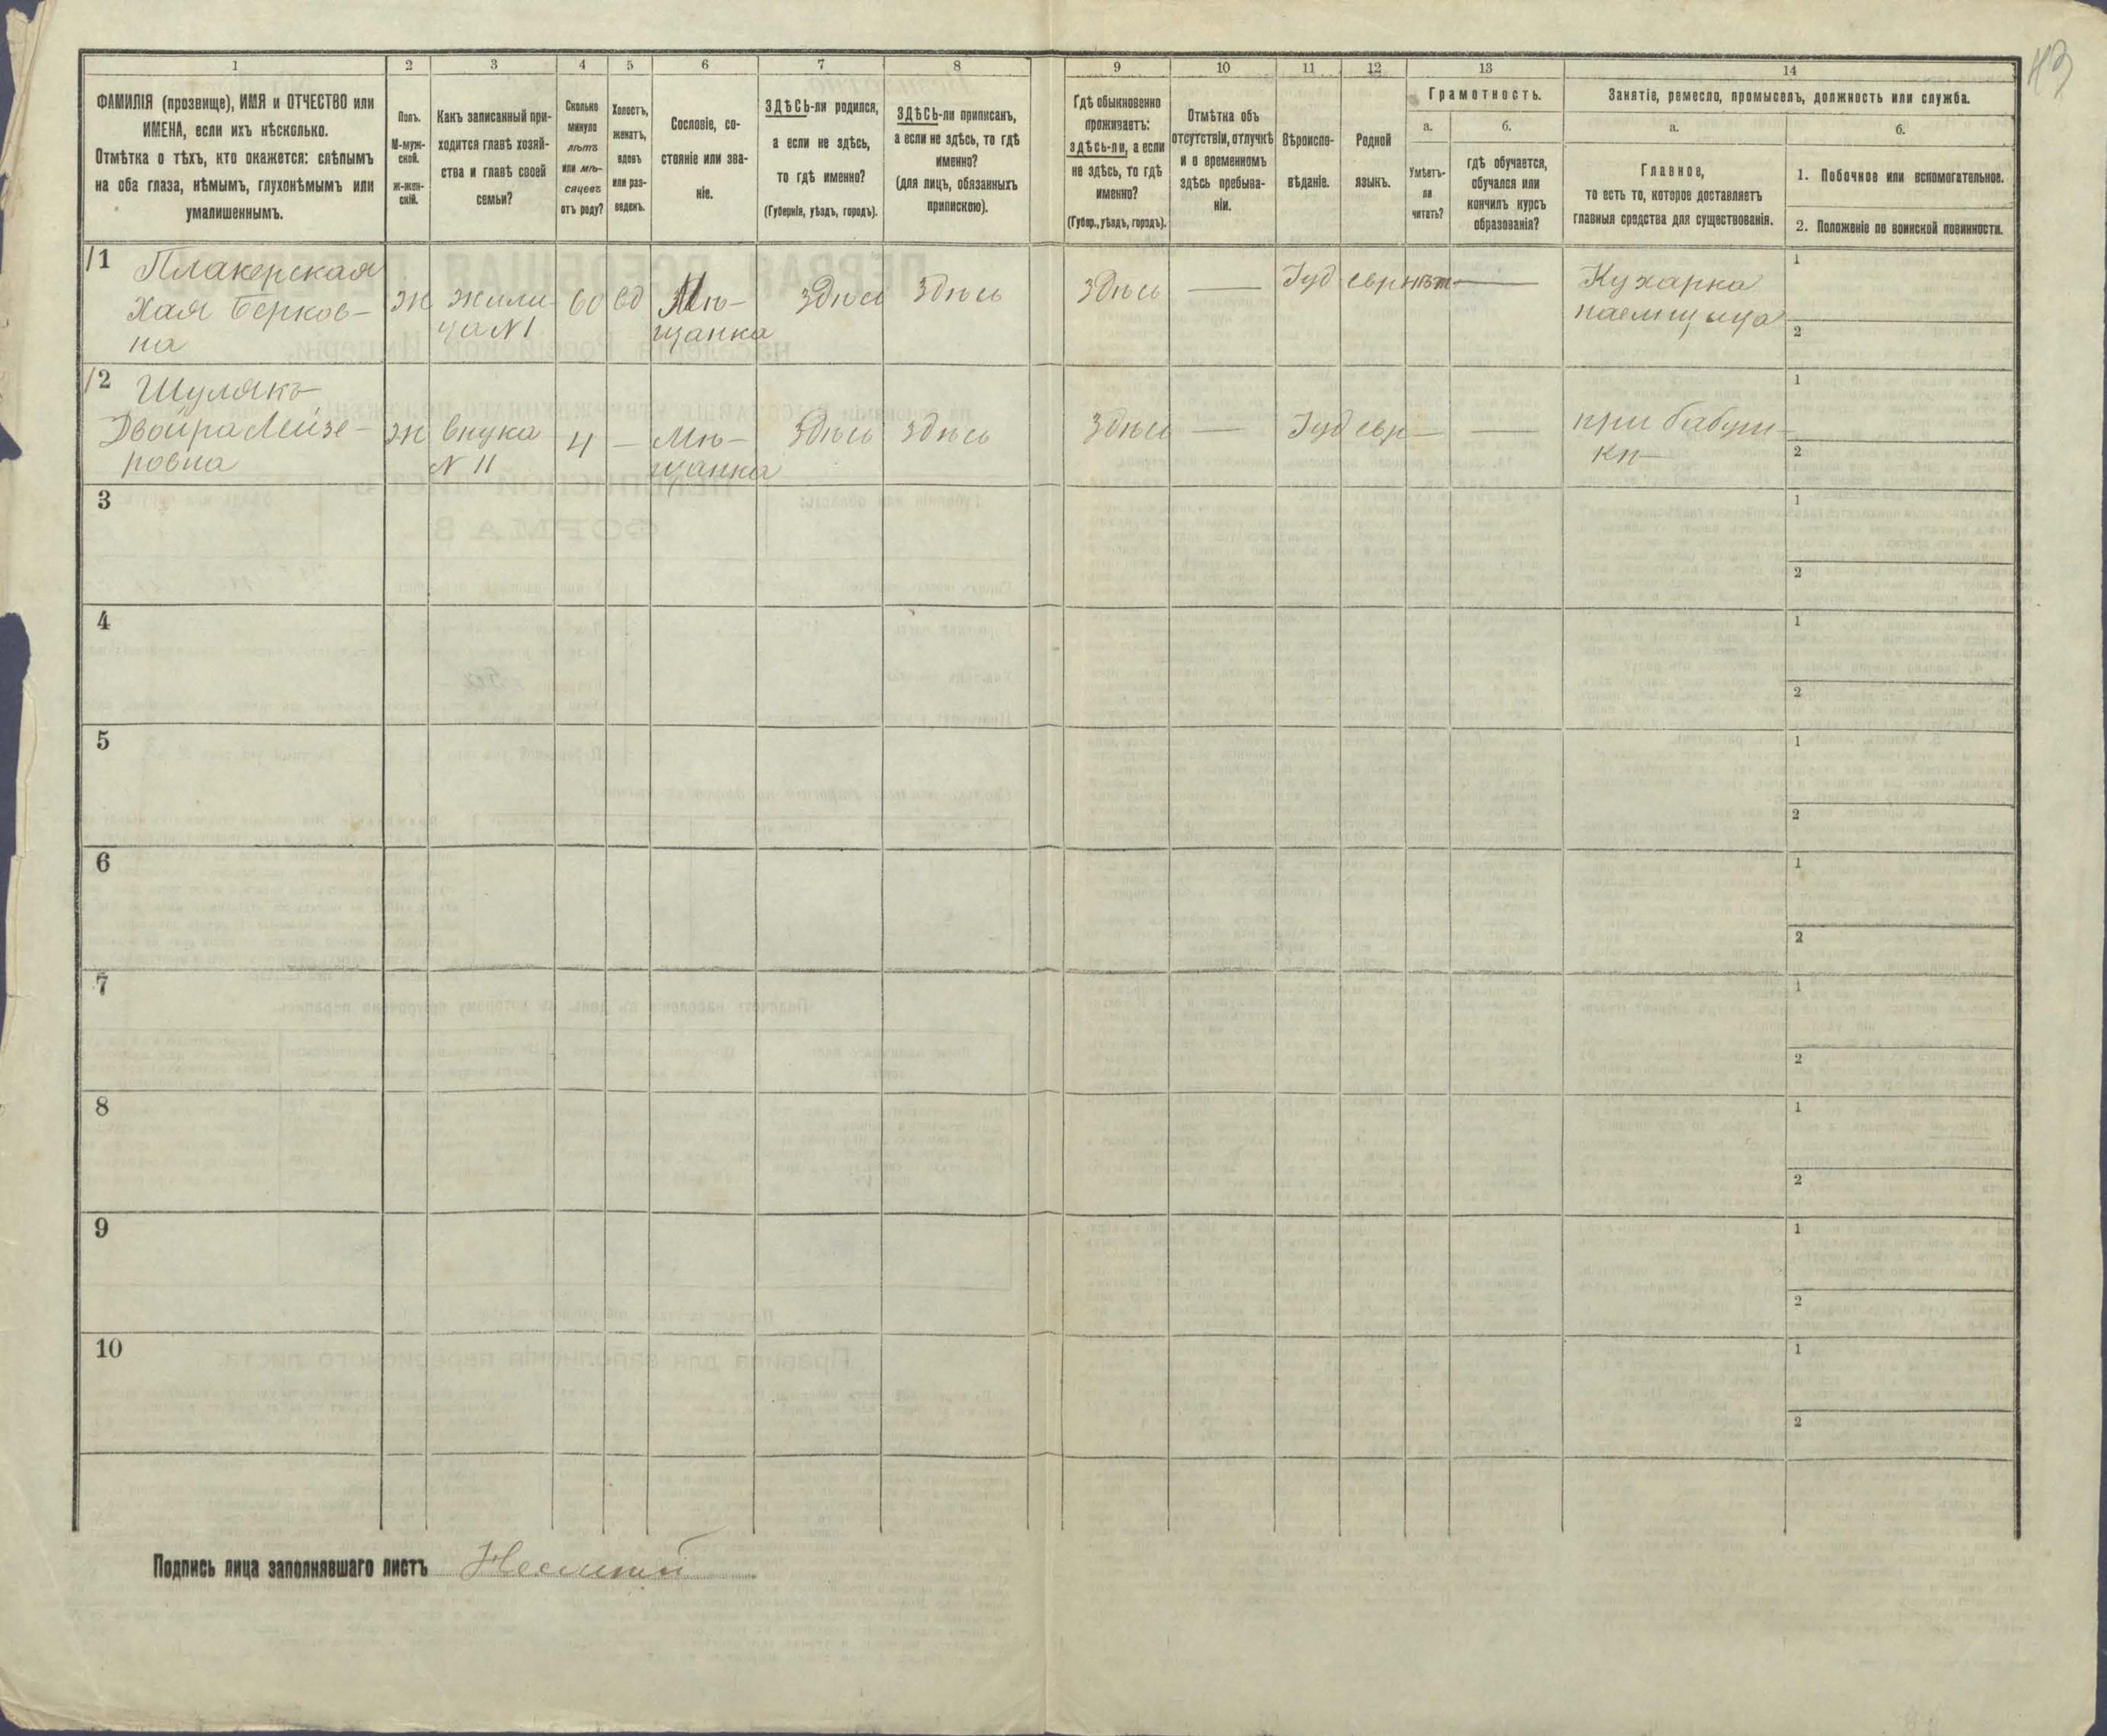 43
1 2 3 4 5 6 7 8 9 10 11 12 13 14
ФАМИЛІЯ (прозвище), ИМЯ и ОТЧЕСТВО или
ИМЕНА, если ихъ нѣсколько.
Отмѣтка о тѣхъ, кто окажется: слѣпымъ
на оба глаза, нѣмымъ, глухонѣмымъ или
умалишеннымъ.
Полъ.
М-муж-
ской.
Ж-жен-
скій.
Какъ записанный при-
ходится главѣ хозяй-
ства и главѣ своей
семьи?
Сколько
минуло
лѣтъ
или мѣ-
сяцевъ
отъ роду?
Холостъ,
женатъ,
вдовъ
или раз-
веденъ.
Сословіе, со-
стояніе или зва-
ніе.
ЗДѢСЬ-ли родился,
а если не здѣсь,
то гдѣ именно?
(Губернія, уѣздъ, городъ).
ЗДѢСЬ-ли приписанъ,
а если не здѣсь, то гдѣ
именно?
(для лицъ, обязанныхъ
припискою).
Гдѣ обыкновенно
проживаетъ:
здѣсь-ли, а если
не здѣсь, то гдѣ
именно?
(Губер., уѣздъ, городъ).
Отмѣтка объ
отсутствіи, отлучкѣ
и о временномъ
здѣсь пребыва-
ніи.
Вѣроиспо-
вѣданіе.
Родной
языкъ.
Грамотность.
а.
Умѣетъ-
ли
читать?
б.
гдѣ обучается,
обучался или
кончилъ курсъ
образованія?
Занятіе, ремесло, промыселъ, должность или служба.
а.
Главное,
то есть то, которое доставляетъ
главныя средства для существованія.
б.
1. Побочное или вспомогательное.
2. Положеніе по воинской повинности.
11 Плакерская
Хая Берков-
на
Ж
жили-
ца N 1
60
вд
Мѣ-
щанка
Здѣсь
Здѣсь
Здѣсь
—
Іуд
евр
нѣт
—
Кухарка
наемщица
1
2
12 Шулякъ
Двойра Лейзе-
ровна
Ж
внука
N 11
4
—
Мѣ-
щанка
Здѣсь
Здѣсь
Здѣсь
—
Іуд
евр
—
—
при бабуш-
кѣ
1
2
3
1
2
4
1
2
5
1
2
6
1
2
7
1
2
8
1
2
9
1
2
10
1
2
Подпись лица заполнявшаго листъ